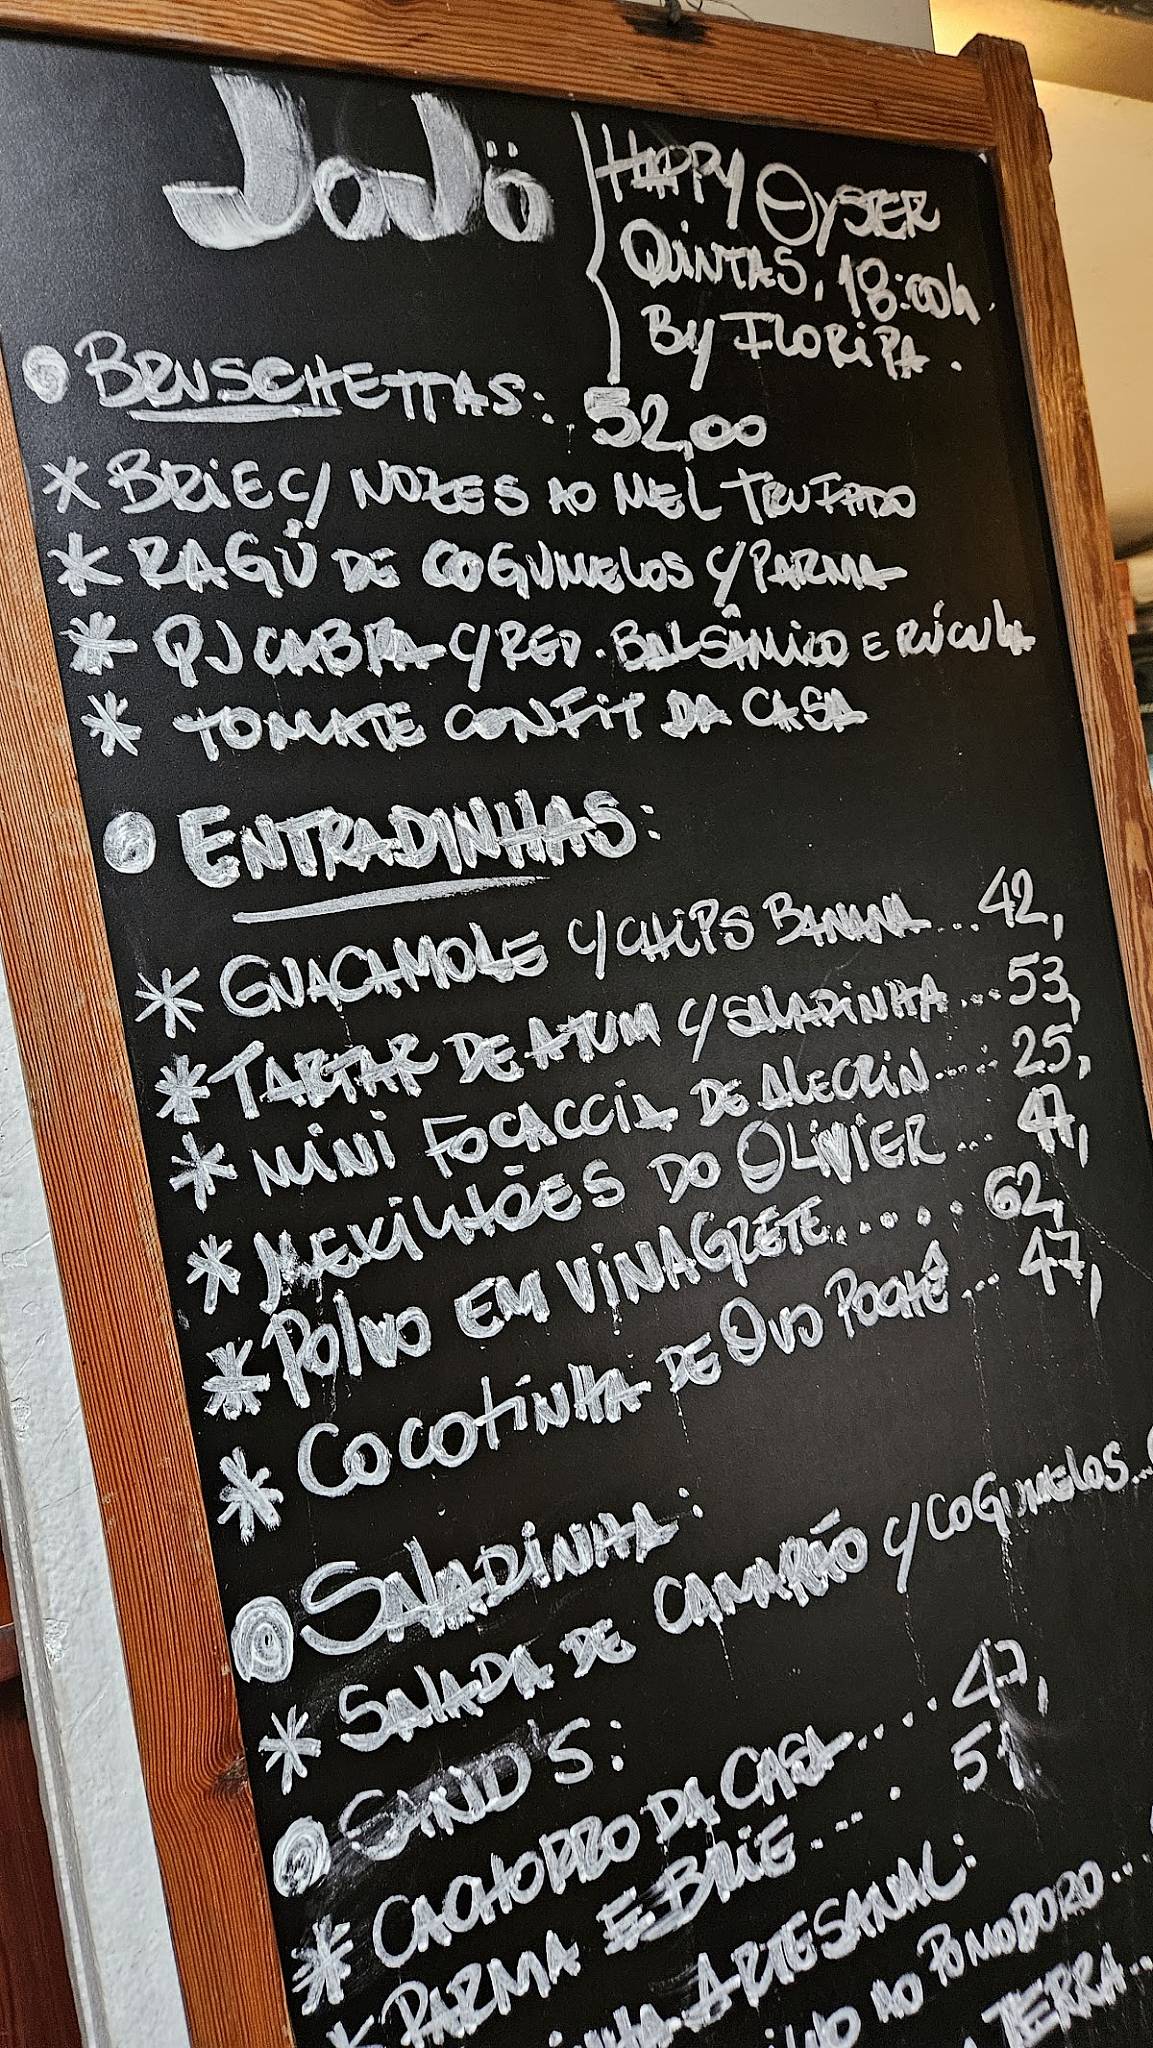 JoJö
HAPPY OYSTER
QUINTAS, 18:00h.
By FLORIPA.
BRUSCHETTAS: 52,00
* BRIE C/ NOZES AO MEL TRUFADO
* RAGÚ DE COGUMELOS C/ PARMA
* QJ CABRA C/ RED. BALSÂMICO E RÚCULA
* TOMATE CONFIT DA CASA
ENTRADINHAS:
* GUACAMOLE C/ CHIPS BANANA... 42,
* TARTAR DE ATUM C/ SALADINHA... 53,
* MINI FOCACCIA DE ALECRIN.... 25,
* MEXILHÕES DO OLIVIER... 47,
* POLVO EM VINAGRETE...... 62,
* COCOTINHA DE OVO POCHÊ... 47,
SALADINHA:
* SALADA DE CAMARÃO C/ COGUMELOS...
SAND'S:
* CACHORRO DA CASA.... 47,
* PARMA E BRIE.... 57,
ARTESANAL:
AO POMODORO...
TERRA...